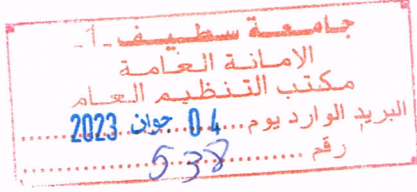 جامعة سطيف -1-
الامانة العامة
مكتب التنظيم العام
البريد الوارد يوم ..... 04 جوان 2023 .....
رقم ..... 538 .....